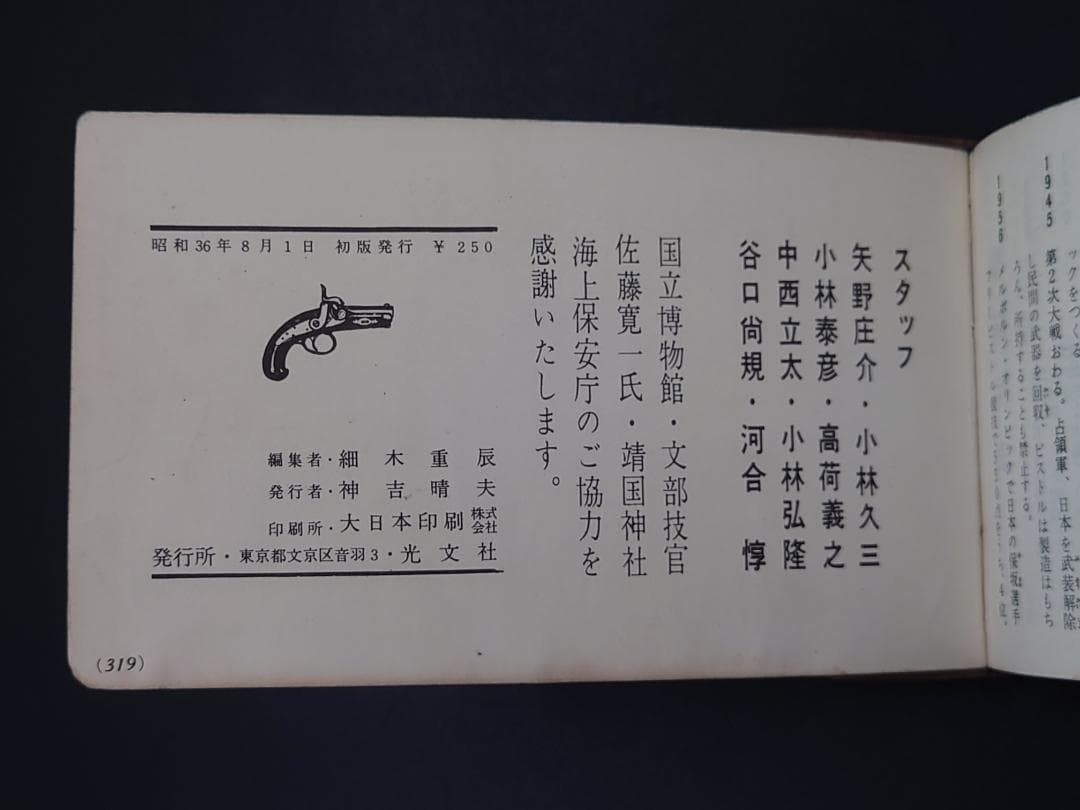 ックをつくる
1945 第2次大戦おわる。占領軍、日本を武装解除
し民間の武器を回収、ピストルは製造はもち
ろん、所持することも禁止する。
1956 メルボルン・オリンピックで日本の保坂選手
スタッフ
矢野庄介・小林久三
小林泰彦・高荷義之
中西立太・小林弘隆
谷口尚規・河合 惇
国立博物館・文部技官
佐藤寛一氏・靖国神社
海上保安庁のご協力を
感謝いたします。
昭和36年8月1日 初版発行 ¥250
編集者・細木重辰
発行者・神吉晴夫
印刷所・大日本印刷株式会社
発行所・東京都文京区音羽3・光文社
(319)